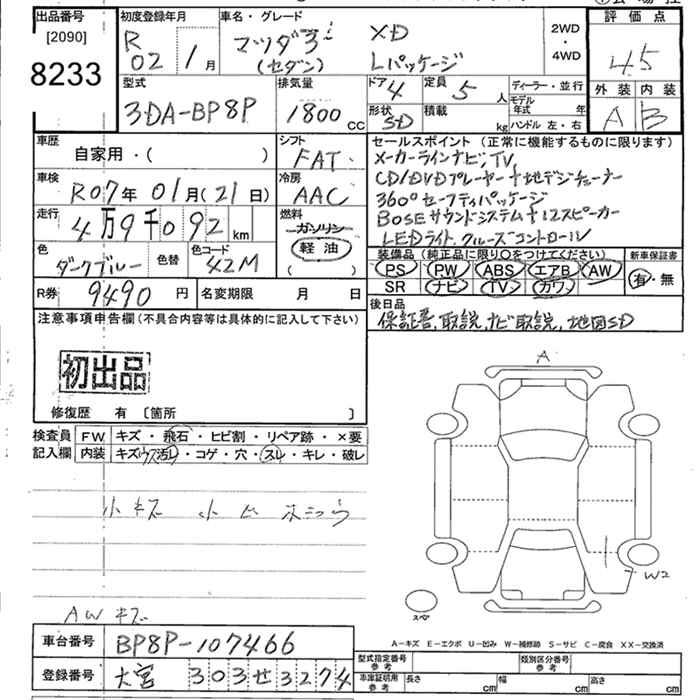 出品番号 [2090] 8233
初度登録年月 R02 年 1月
車名・グレード マツダ3 (セダン) XD Lパッケージ
2WD・4WD
評価点 4.5
外装 A 内装 B
型式 3DA-BP8P
排気量 1800 CC
ドア 4 形状 SD
定員 5人 積載 kg
ディーラー・並行
モデル年式 年
ハンドル 左・右
車歴 自家用・( )
シフト FAT
車検 R07年 01月(21日)
冷房 AAC
走行 4万9千092 km
燃料 ガソリン 軽油 ( )
色 ダークブルー 色替 色コード 42M
R券 9490円 名変期限 月 日
セールスポイント(正常に機能するものに限ります)
メーカーラインナビ,TV
CD/DVDプレーヤー+地デジチューナー
360°セーフティパッケージ
BOSEサウンドシステム+12スピーカー
LEDライト,クルーズコントロール
装備品(純正品に限り○をつけてください)
PS PW ABS エアB AW
SR ナビ TV カワ
新車保証書 有・無
後日品
保証書,取説,ナビ取説,地図SD
注意事項申告欄(不具合内容等は具体的に記入して下さい)
初出品
修復歴 有 〔箇所 〕
検査員記入欄
FW キズ・飛石・ヒビ割・リペア跡・×要
内装 キズ ウス汚レ・コゲ・穴・スレ・キレ・破レ
小キズ 小凹
AWキズ
A
W2
スペア
A-キズ E-エクボ U-凹み W-補修跡 S-サビ C-腐食 XX-交換済
車台番号 BP8P-107466
登録番号 大宮 303 せ 3274
型式指定番号 参考 類別区分番号 参考
車庫証明用 参考 長さ cm 幅 cm 高さ cm